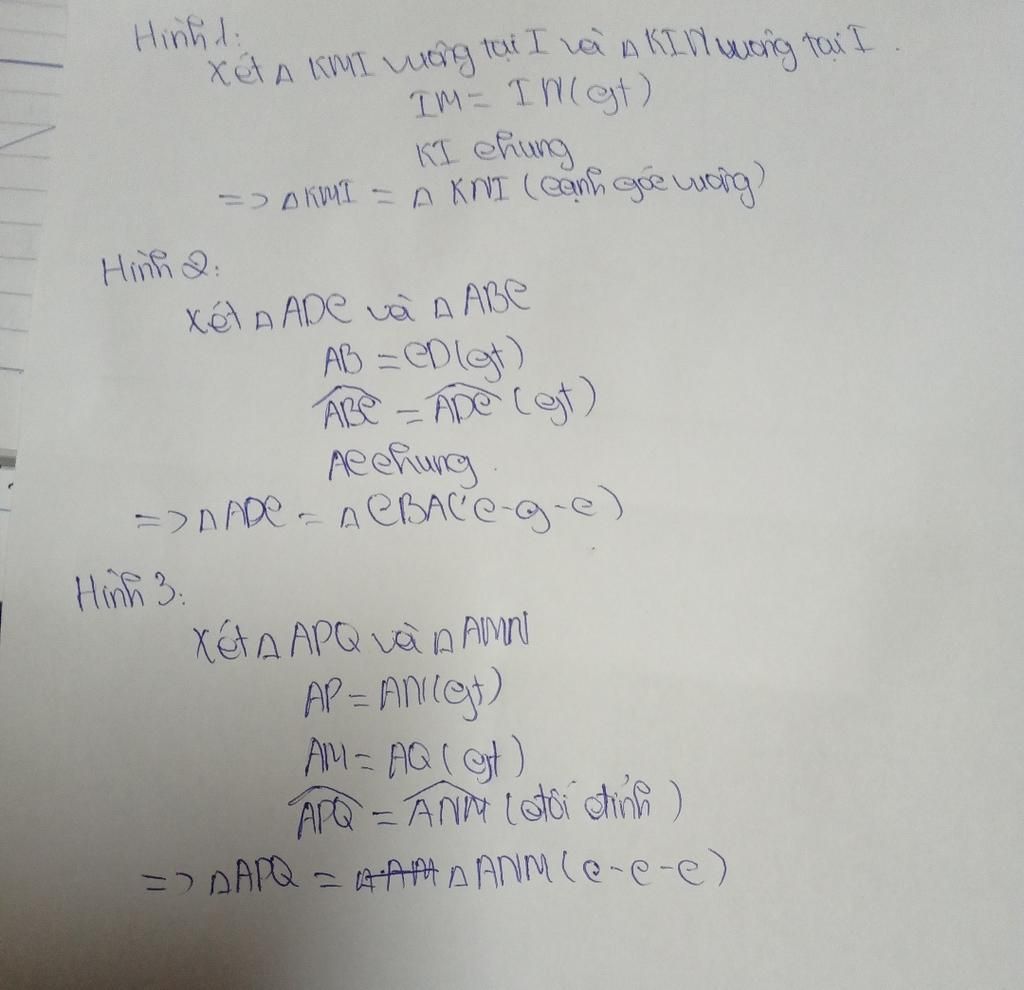 Hình 1:
Xét Δ KMI vuông tại I và Δ KIN vuông tại I.
IM = IN (gt)
KI chung
=> Δ KMI = Δ KNI (cạnh góc vuông)
Hình 2:
Xét Δ ADC và Δ ABC
AB = CD (gt)
ABC = ADC (gt)
AC chung.
=> Δ ADC = Δ CBA (c-g-c)
Hình 3:
Xét Δ APQ và Δ AMN
AP = AN (gt)
AM = AQ (gt)
APQ = ANM (đối đỉnh)
=> Δ APQ = Δ AM Δ ANM (c-c-c)